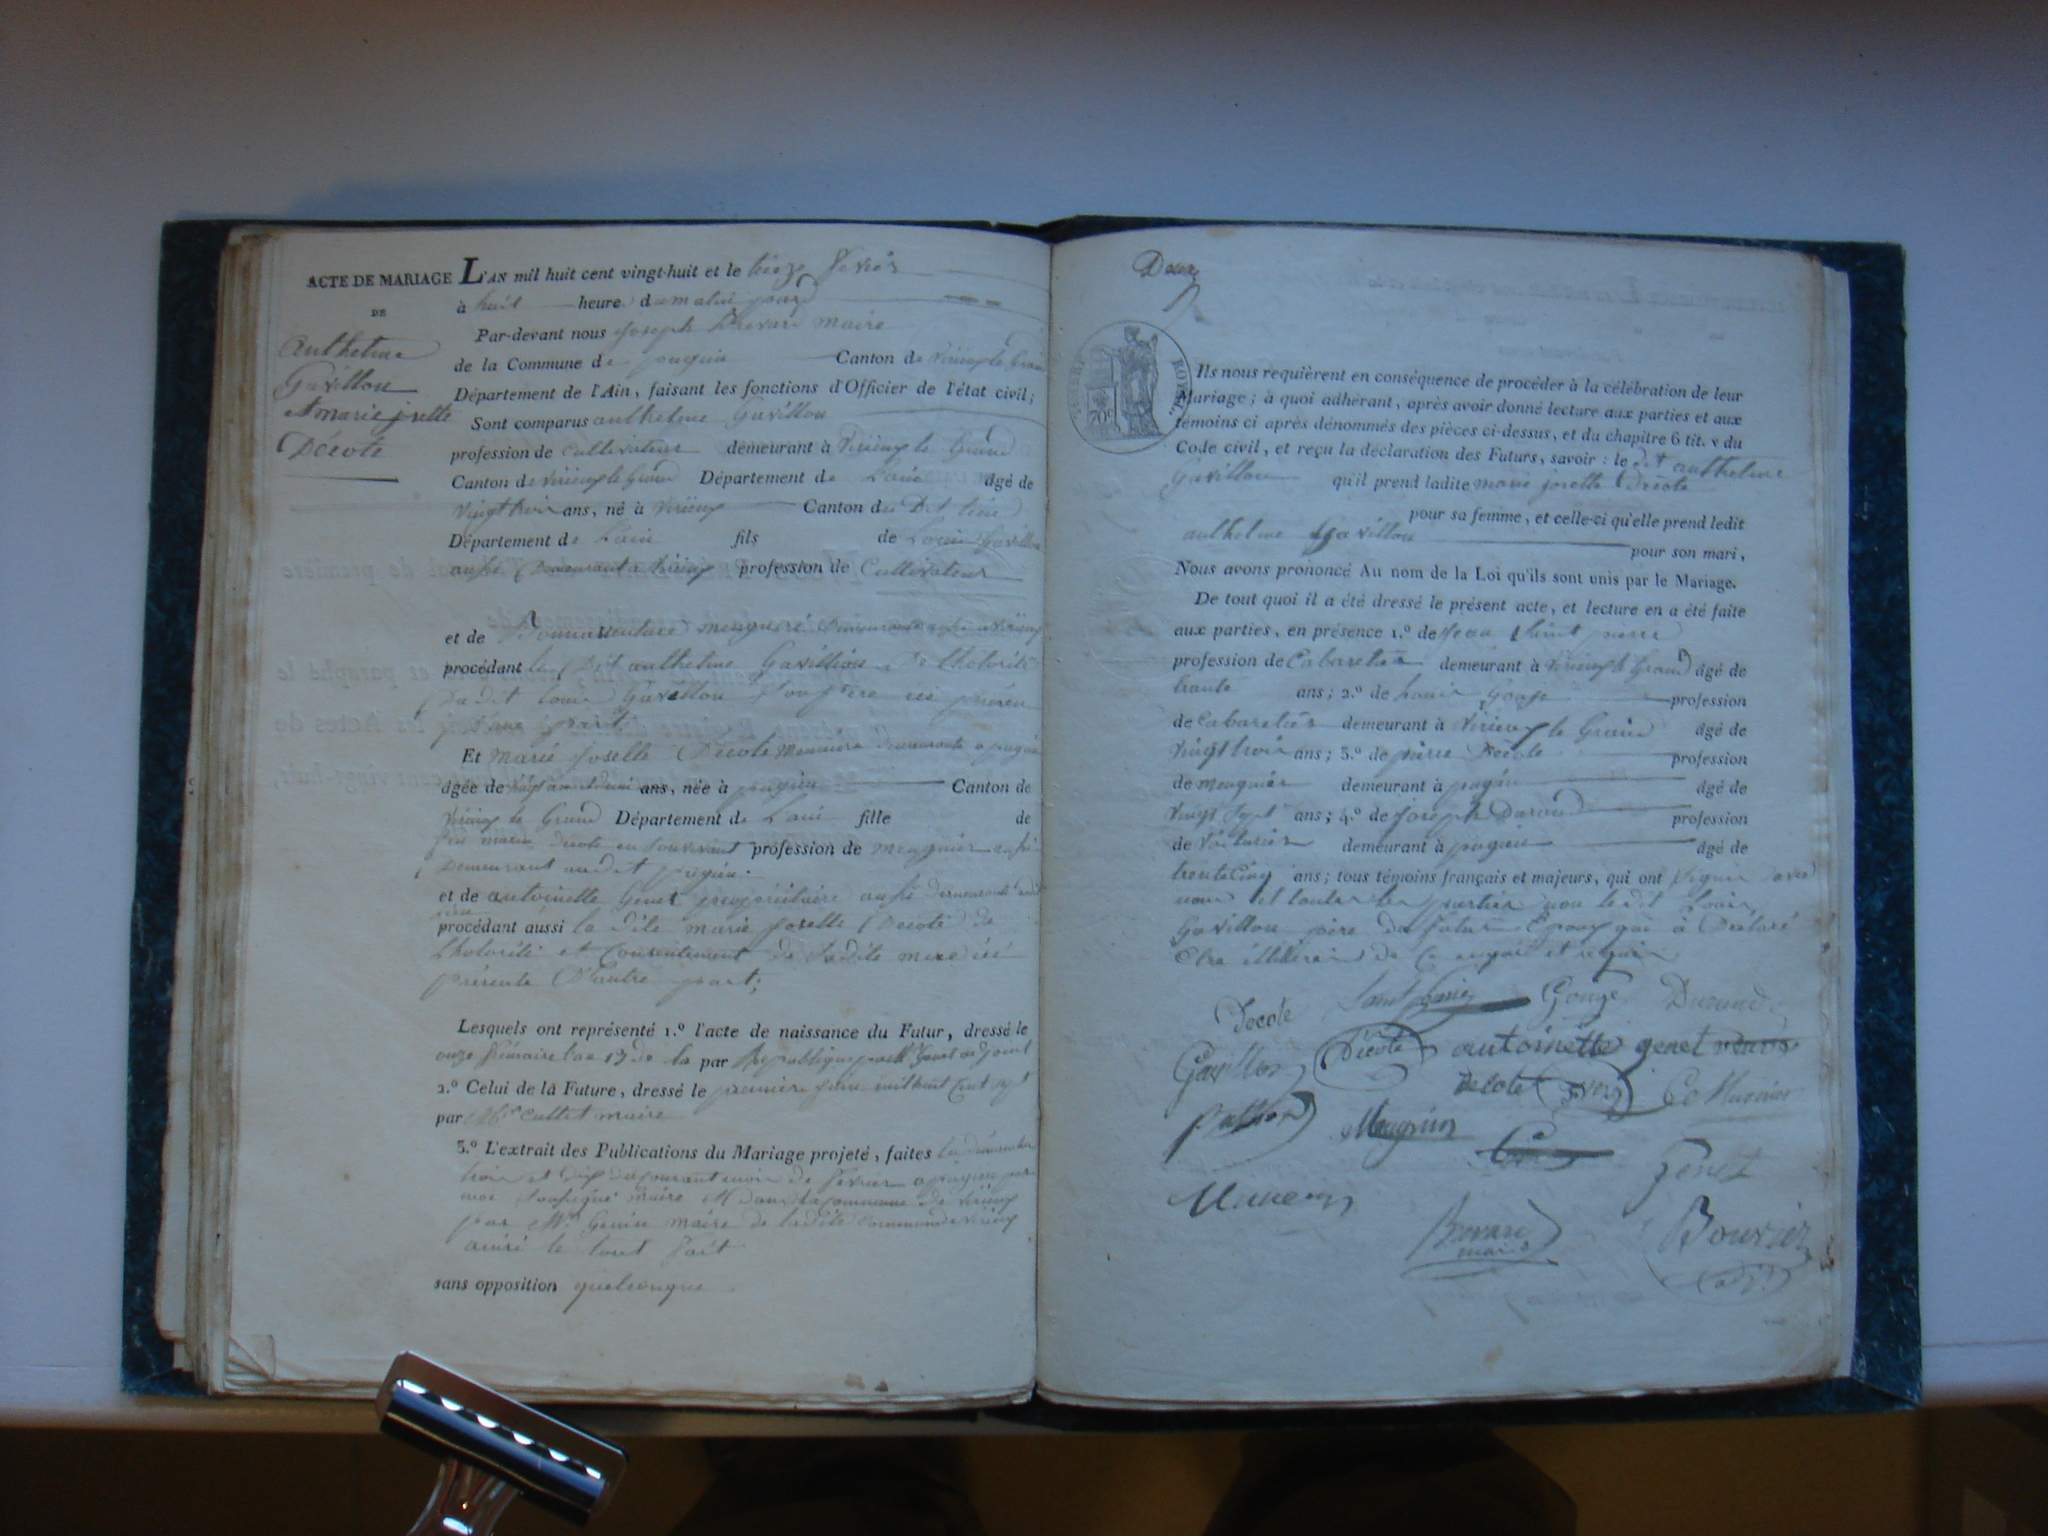 ACTE DE MARIAGE
DE
anthelme
Gavillon
et marie joselle
Décote
L'AN mil huit cent vingt-huit et le treize fevrier
à huit heure du matin
Par-devant nous joseph Brevard maire
de la Commune de pugieu Canton de virieu le Grand
Département de l'Ain, faisant les fonctions d'Officier de l'état civil;
Sont comparus anthelme Gavillon
profession de cultivateur demeurant à virieu le Grand
Canton de virieu le Grand Département de Lain âgé de
vingt trois ans, né à virieu Canton du Dit lieu
Département de Lain fils de Louis Gavillon
aussi Demeurant a virieu profession de Cultivateur
et de Bonnaventure Demeurante aussi a virieu
procédant le Dit anthelme Gavillion de Lhotorité
Du dit Louis Gavillon Son père ici présen
D'une part
Et marie Joselle Décote Demeurante a pugieu
âgée de ans, née à pugieu Canton de
virieu le Grand Département de Lain fille de
Décote en Son vivant profession de meugnier aussi
Demeurant audit pugieu.
et de antoinette Genet propriétaire aussi demeurante audit
lieu
procédant aussi la Dite marie Joselle Decote de
Lhotorité et Consentement de Sadite mere ici
présente D'autre part;
Lesquels ont représenté 1.º l'acte de naissance du Futur, dressé le
onze frimaire l'an 13 de la par République Genet adjoint
2.º Celui de la Future, dressé le premier juin mil huit Cent
par Mr Cullet maire
3.º L'extrait des Publications du Mariage projeté, faites les Dimanches
trois et Dix du courant mois de février a pugieu par
moi Soussigné maire et Dans la commune de virieu
par Mr Genin maire de ladite commune de virieu
ainsi le tout fait
sans opposition quelconque.
Deux
TIMBRE ROYAL
70 c
Ils nous requièrent en conséquence de procéder à la célébration de leur
Mariage; à quoi adhérant, après avoir donné lecture aux parties et aux
témoins ci après dénommés des pièces ci-dessus, et du chapitre 6 tit. v du
Code civil, et reçu la déclaration des Futurs, savoir: le dit anthelme
Gavillon qu'il prend ladite marie joselle Décote
pour sa femme, et celle-ci qu'elle prend ledit
anthelme Gavillon pour son mari,
Nous avons prononcé Au nom de la Loi qu'ils sont unis par le Mariage.
De tout quoi il a été dressé le présent acte, et lecture en a été faite
aux parties, en présence 1.º de jean Saint pierre
profession de Cabaretier demeurant à virieu le Grand âgé de
trante ans; 2.º de Louis Gouje profession
de Cabaretier demeurant à virieu le Grand âgé de
vingt trois ans; 3.º de pierre Decote profession
de meugnier demeurant à pugieu âgé de
vingt Sept ans; 4.º de joseph Durand profession
de demeurant à pugieu âgé de
trente Cinq ans; tous témoins français et majeurs, qui ont Signer avec
nous et toutes les parties non ledit Louis
Gavillon père du futur Epoux qui à Déclaré
Etre illitéré de Ce enquis et requis
Decote Saint pierre Gouge Durand
Gavillon Décote antoinette genet veuve
Decote
Meugnin
Genet
Brevard
maire
Bouvier
adjt